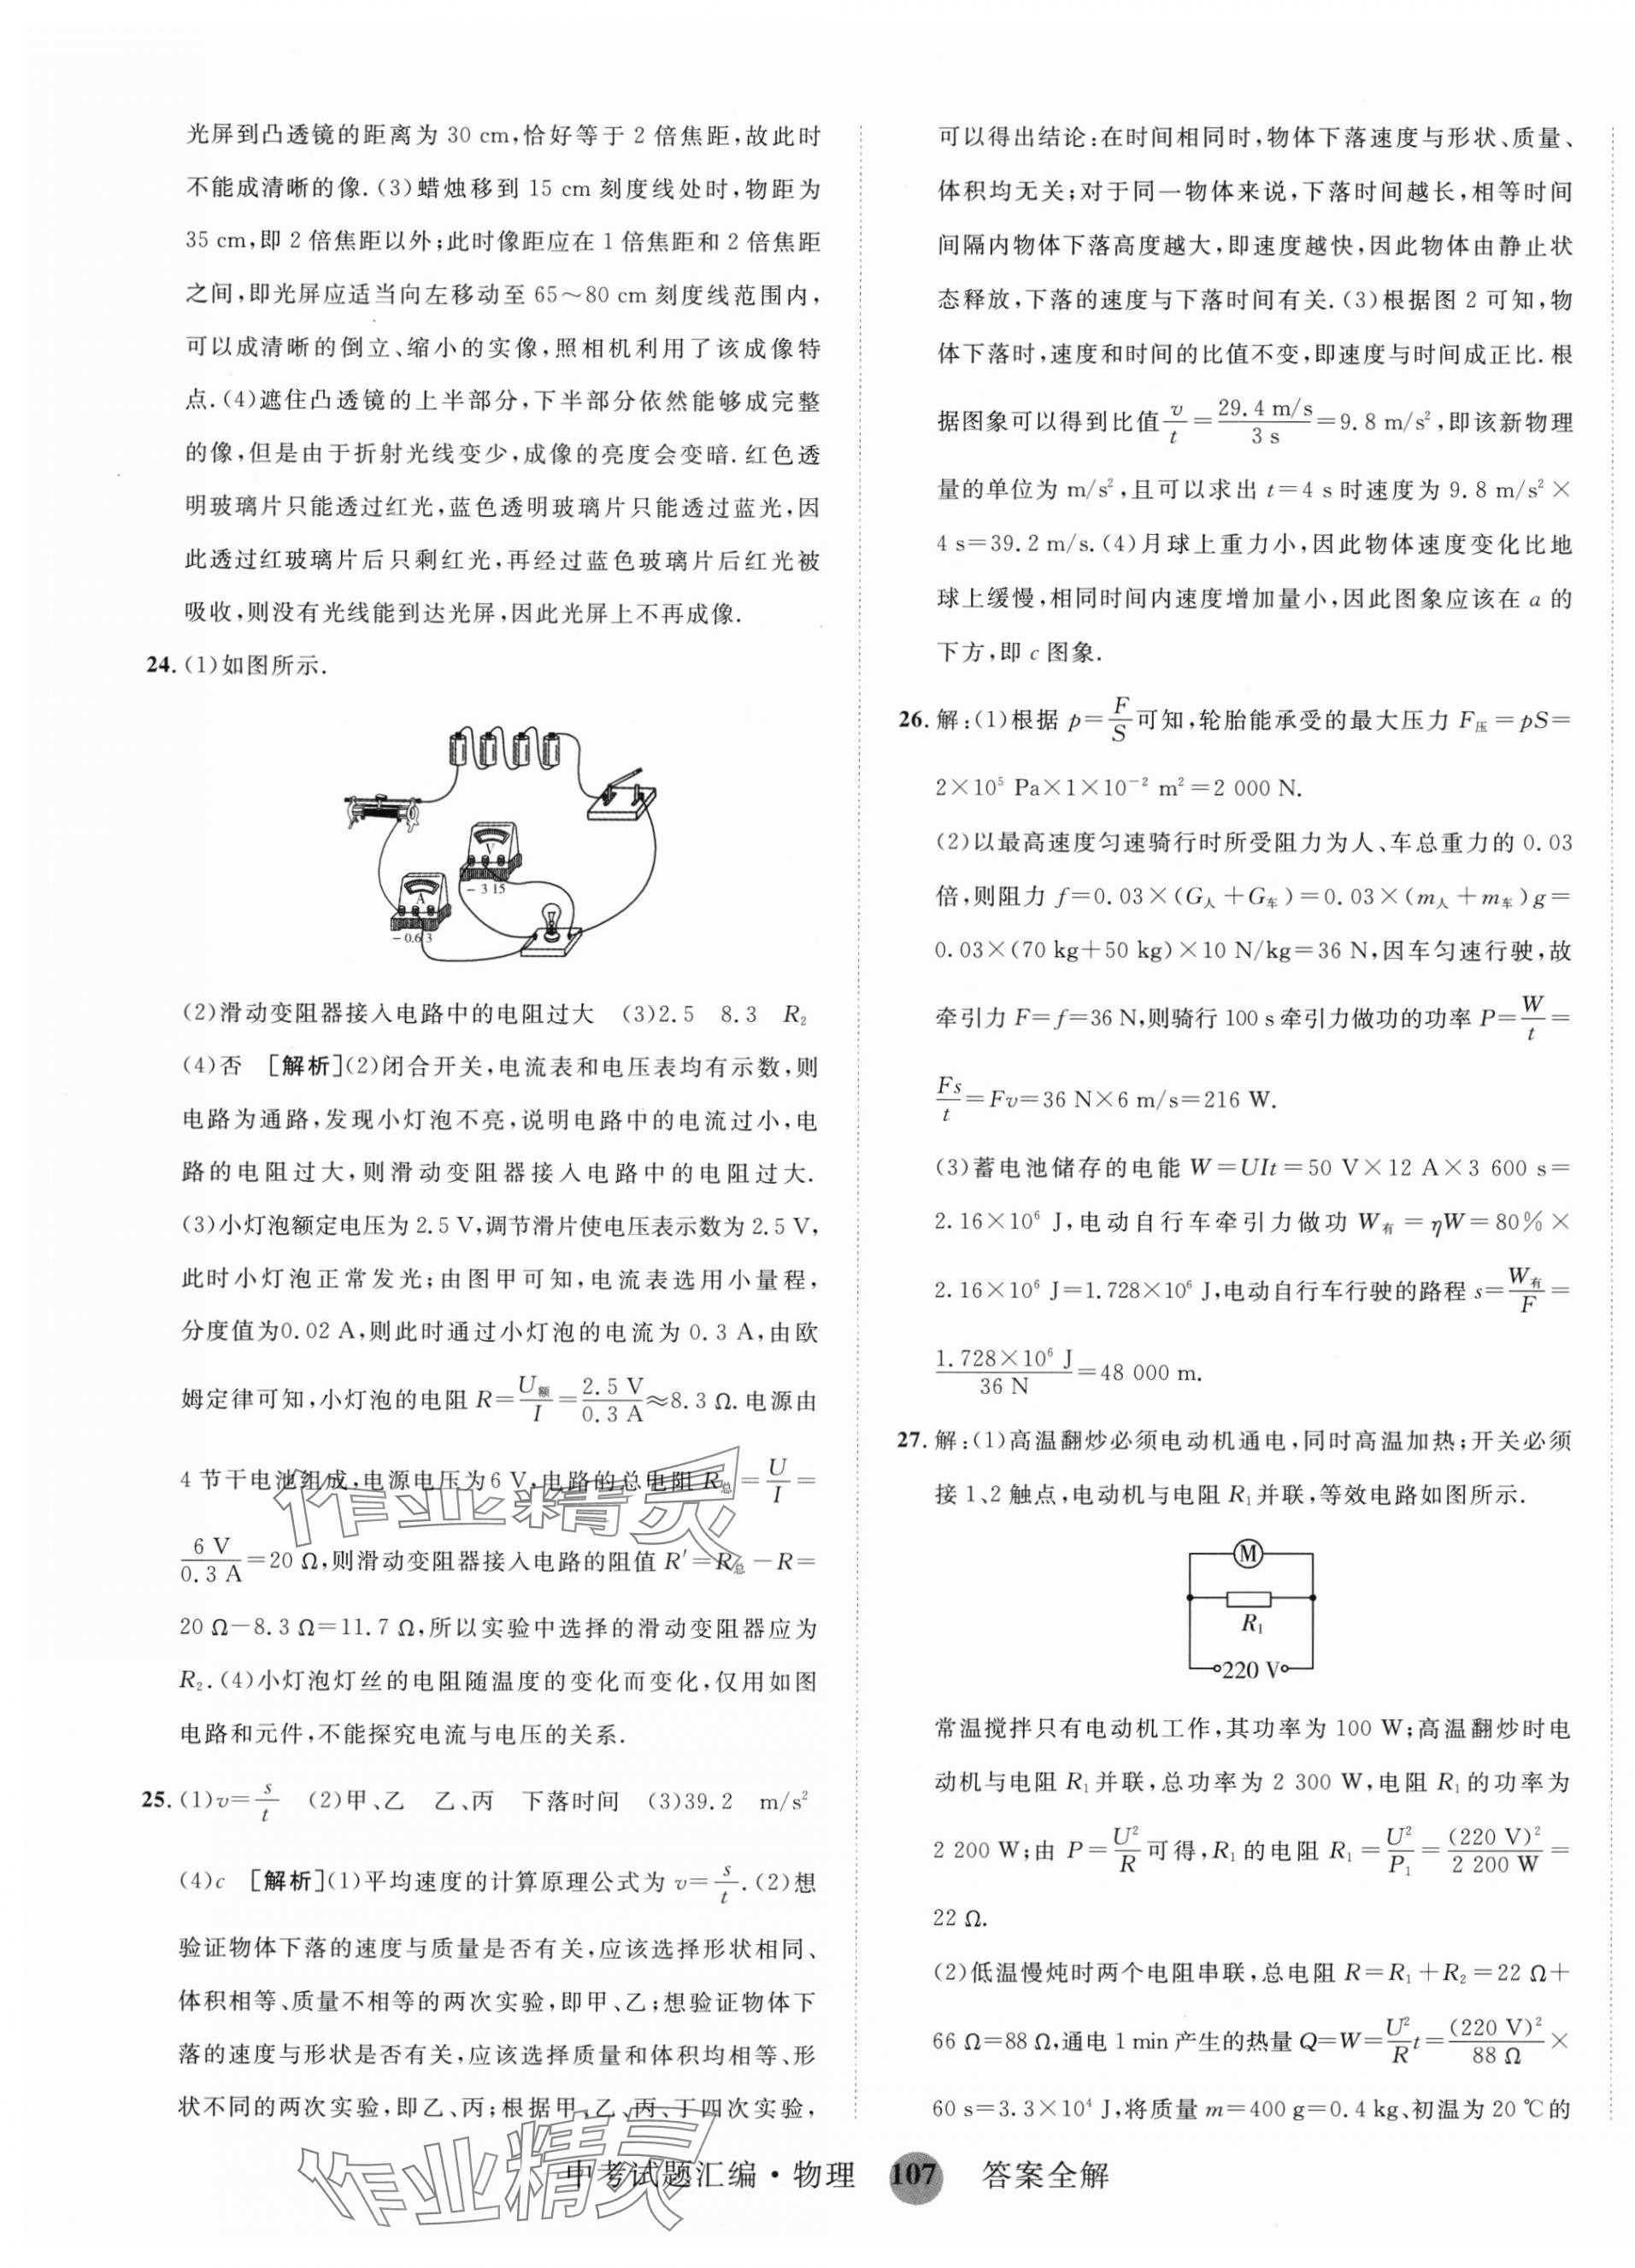 光屏到凸透镜的距离为 30 cm,恰好等于 2 倍焦距,故此时
不能成清晰的像.(3)蜡烛移到 15 cm 刻度线处时,物距为
35 cm,即 2 倍焦距以外;此时像距应在 1 倍焦距和 2 倍焦距
之间,即光屏应适当向左移动至 65～80 cm 刻度线范围内,
可以成清晰的倒立、缩小的实像,照相机利用了该成像特
点.(4)遮住凸透镜的上半部分,下半部分依然能够成完整
的像,但是由于折射光线变少,成像的亮度会变暗.红色透
明玻璃片只能透过红光,蓝色透明玻璃片只能透过蓝光,因
此透过红玻璃片后只剩红光,再经过蓝色玻璃片后红光被
吸收,则没有光线能到达光屏,因此光屏上不再成像.
24.(1)如图所示.
V
- 3 15
A
- 0.6 3
(2)滑动变阻器接入电路中的电阻过大 (3)2.5 8.3 R₂
(4)否 [解析](2)闭合开关,电流表和电压表均有示数,则
电路为通路,发现小灯泡不亮,说明电路中的电流过小,电
路的电阻过大,则滑动变阻器接入电路中的电阻过大.
(3)小灯泡额定电压为 2.5 V,调节滑片使电压表示数为 2.5 V,
此时小灯泡正常发光;由图甲可知,电流表选用小量程,
分度值为0.02 A,则此时通过小灯泡的电流为 0.3 A,由欧
姆定律可知,小灯泡的电阻 R=U额/I=2.5 V/0.3 A≈8.3 Ω.电源由
4 节干电池组成,电源电压为6 V,电路的总电阻 R总=U/I=
6 V/0.3 A=20 Ω,则滑动变阻器接入电路的阻值 R′=R总-R=
20 Ω-8.3 Ω=11.7 Ω,所以实验中选择的滑动变阻器应为
R₂.(4)小灯泡灯丝的电阻随温度的变化而变化,仅用如图
电路和元件,不能探究电流与电压的关系.
25.(1)v=s/t (2)甲、乙 乙、丙 下落时间 (3)39.2 m/s²
(4)c [解析](1)平均速度的计算原理公式为 v=s/t.(2)想
验证物体下落的速度与质量是否有关,应该选择形状相同、
体积相等、质量不相等的两次实验,即甲、乙;想验证物体下
落的速度与形状是否有关,应该选择质量和体积均相等、形
状不同的两次实验,即乙、丙;根据甲、乙、丙、丁四次实验,
可以得出结论:在时间相同时,物体下落速度与形状、质量、
体积均无关;对于同一物体来说,下落时间越长,相等时间
间隔内物体下落高度越大,即速度越快,因此物体由静止状
态释放,下落的速度与下落时间有关.(3)根据图 2 可知,物
体下落时,速度和时间的比值不变,即速度与时间成正比.根
据图象可以得到比值v/t=29.4 m/s/3 s=9.8 m/s²,即该新物理
量的单位为 m/s²,且可以求出 t=4 s 时速度为 9.8 m/s²×
4 s=39.2 m/s.(4)月球上重力小,因此物体速度变化比地
球上缓慢,相同时间内速度增加量小,因此图象应该在 a 的
下方,即 c 图象.
26.解:(1)根据 p=F/S可知,轮胎能承受的最大压力 F压=pS=
2×10⁵ Pa×1×10⁻² m²=2 000 N.
(2)以最高速度匀速骑行时所受阻力为人、车总重力的 0.03
倍,则阻力 f=0.03×(G人+G车)=0.03×(m人+m车)g=
0.03×(70 kg+50 kg)×10 N/kg=36 N,因车匀速行驶,故
牵引力 F=f=36 N,则骑行 100 s牵引力做功的功率 P=W/t=
Fs/t=Fv=36 N×6 m/s=216 W.
(3)蓄电池储存的电能 W=UIt=50 V×12 A×3 600 s=
2.16×10⁶ J,电动自行车牵引力做功 W有=ηW=80%×
2.16×10⁶ J=1.728×10⁶ J,电动自行车行驶的路程 s=W有/F=
1.728×10⁶ J/36 N=48 000 m.
27.解:(1)高温翻炒必须电动机通电,同时高温加热;开关必须
接1、2触点,电动机与电阻 R₁并联,等效电路如图所示.
M
R₁
220 V
常温搅拌只有电动机工作,其功率为 100 W;高温翻炒时电
动机与电阻 R₁并联,总功率为 2 300 W,电阻 R₁的功率为
2 200 W;由 P=U²/R可得,R₁的电阻 R₁=U²/P₁=(220 V)²/2 200 W=
22 Ω.
(2)低温慢炖时两个电阻串联,总电阻 R=R₁+R₂=22 Ω+
66 Ω=88 Ω,通电 1 min 产生的热量 Q=W=U²/R t=(220 V)²/88 Ω×
60 s=3.3×10⁴ J,将质量 m=400 g=0.4 kg、初温为 20 ℃的
作业精灵
作业精灵
中考试题汇编·物理 107 答案全解